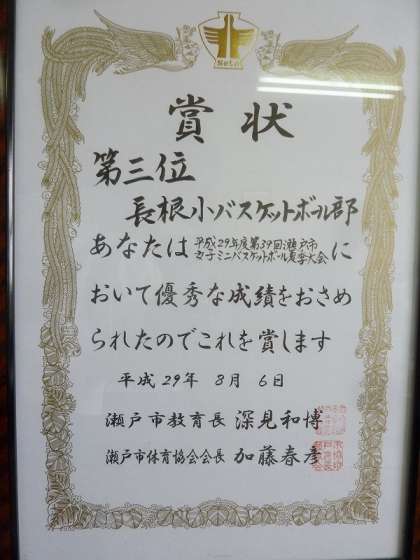 Seto
賞状
第三位
長根小バスケットボール部
あなたは平成29年度第39回瀬戸市
女子ミニバスケットボール夏季大会に
おいて優秀な成績をおさめ
られたのでこれを賞します
平成29年 8月 6日
瀬戸市教育長 深見和博
瀬戸市体育協会会長 加藤春彦